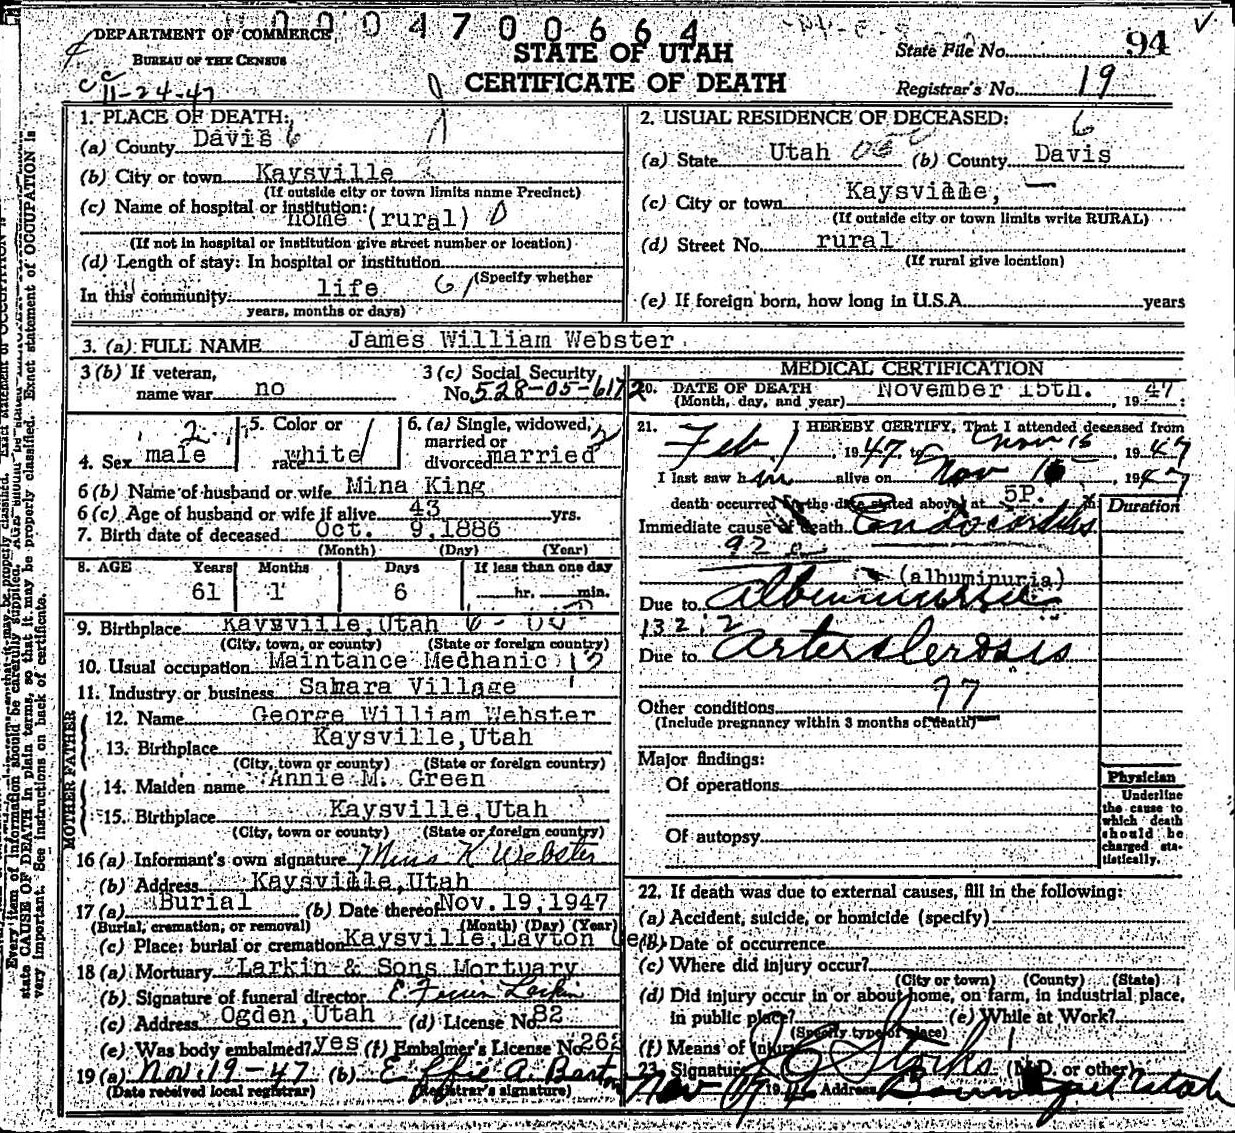 0004700664
DEPARTMENT OF COMMERCE
BUREAU OF THE CENSUS
11-24-47
STATE OF UTAH
CERTIFICATE OF DEATH
State File No. 94
Registrar's No. 19
1. PLACE OF DEATH:
(a) County Davis 6
(b) City or town Kaysville
(If outside city or town limits name Precinct)
(c) Name of hospital or institution:
home (rural) 0
(If not in hospital or institution give street number or location)
(d) Length of stay: In hospital or institution
(Specify whether
In this community life 61
years, months or days)
2. USUAL RESIDENCE OF DECEASED: 6
(a) State Utah (b) County Davis
(c) City or town Kaysville,
(If outside city or town limits write RURAL)
(d) Street No. rural
(If rural give location)
(e) If foreign born, how long in U.S.A. years
3. (a) FULL NAME James William Webster
3 (b) If veteran,
name war no
3 (c) Social Security
No. 528-05-6172
4. Sex male 2
5. Color or
race white
6. (a) Single, widowed,
married or
divorced married 2
6 (b) Name of husband or wife Mina King
6 (c) Age of husband or wife if alive 43 yrs.
7. Birth date of deceased Oct. 9, 1886
(Month) (Day) (Year)
8. AGE Years Months Days If less than one day
61 1 6 hr. min.
9. Birthplace Kaysville, Utah
(City, town, or county) (State or foreign country)
10. Usual occupation Maintance Medhanic
11. Industry or business Sahara Village
FATHER
12. Name George William Webster
13. Birthplace Kaysville, Utah
(City, town or county) (State or foreign country)
MOTHER
14. Maiden name Annie M. Green
15. Birthplace Kaysville, Utah
(City, town or county) (State or foreign country)
16 (a) Informant's own signature Mina K Webster
(b) Address Kaysville, Utah
17 (a) Burial (b) Date thereof Nov. 19, 1947
(Burial, cremation, or removal) (Month) (Day) (Year)
(c) Place: burial or cremation Kaysville, Layton Cem
18 (a) Mortuary Larkin & Sons Mortuary
(b) Signature of funeral director Larkin
(c) Address Ogden, Utah (d) License No. 82
(e) Was body embalmed? yes (f) Embalmer's License No. 262
19 (a) Nov. 19-47 (b) Effie A. Barton
(Date received local registrar) (Registrar's signature)
MEDICAL CERTIFICATION
20. DATE OF DEATH November 15th. 1947
(Month, day, and year)
21. I HEREBY CERTIFY, That I attended deceased from
Feb 1, 1947 to Nov 15 1947
I last saw him alive on Nov 15 1947
death occurred on the date stated above, at 5P. m
Duration
Immediate cause of death Endocarditis
92
(albuminuria)
Due to Albuminuria
132
Due to Arterslerosis
97
Other conditions
(Include pregnancy within 3 months of death)
Major findings:
Of operations
Of autopsy
Physician
Underline
the cause to
which death
should be
charged sta-
tistically.
22. If death was due to external causes, fill in the following:
(a) Accident, suicide, or homicide (specify)
(b) Date of occurrence
(c) Where did injury occur?
(City or town) (County) (State)
(d) Did injury occur in or about home, on farm, in industrial place,
in public place? (e) While at Work?
(Specify type of place)
(f) Means of Injury
23. Signature (M.D. or other)
Nov 19 Address Bountiful Utah
Every item of information should be carefully supplied. AGE should be stated
state CAUSE OF DEATH in plain terms, so that it may be properly classified. Exact statement of OCCUPATION is
very important. See instructions on back of certificate.